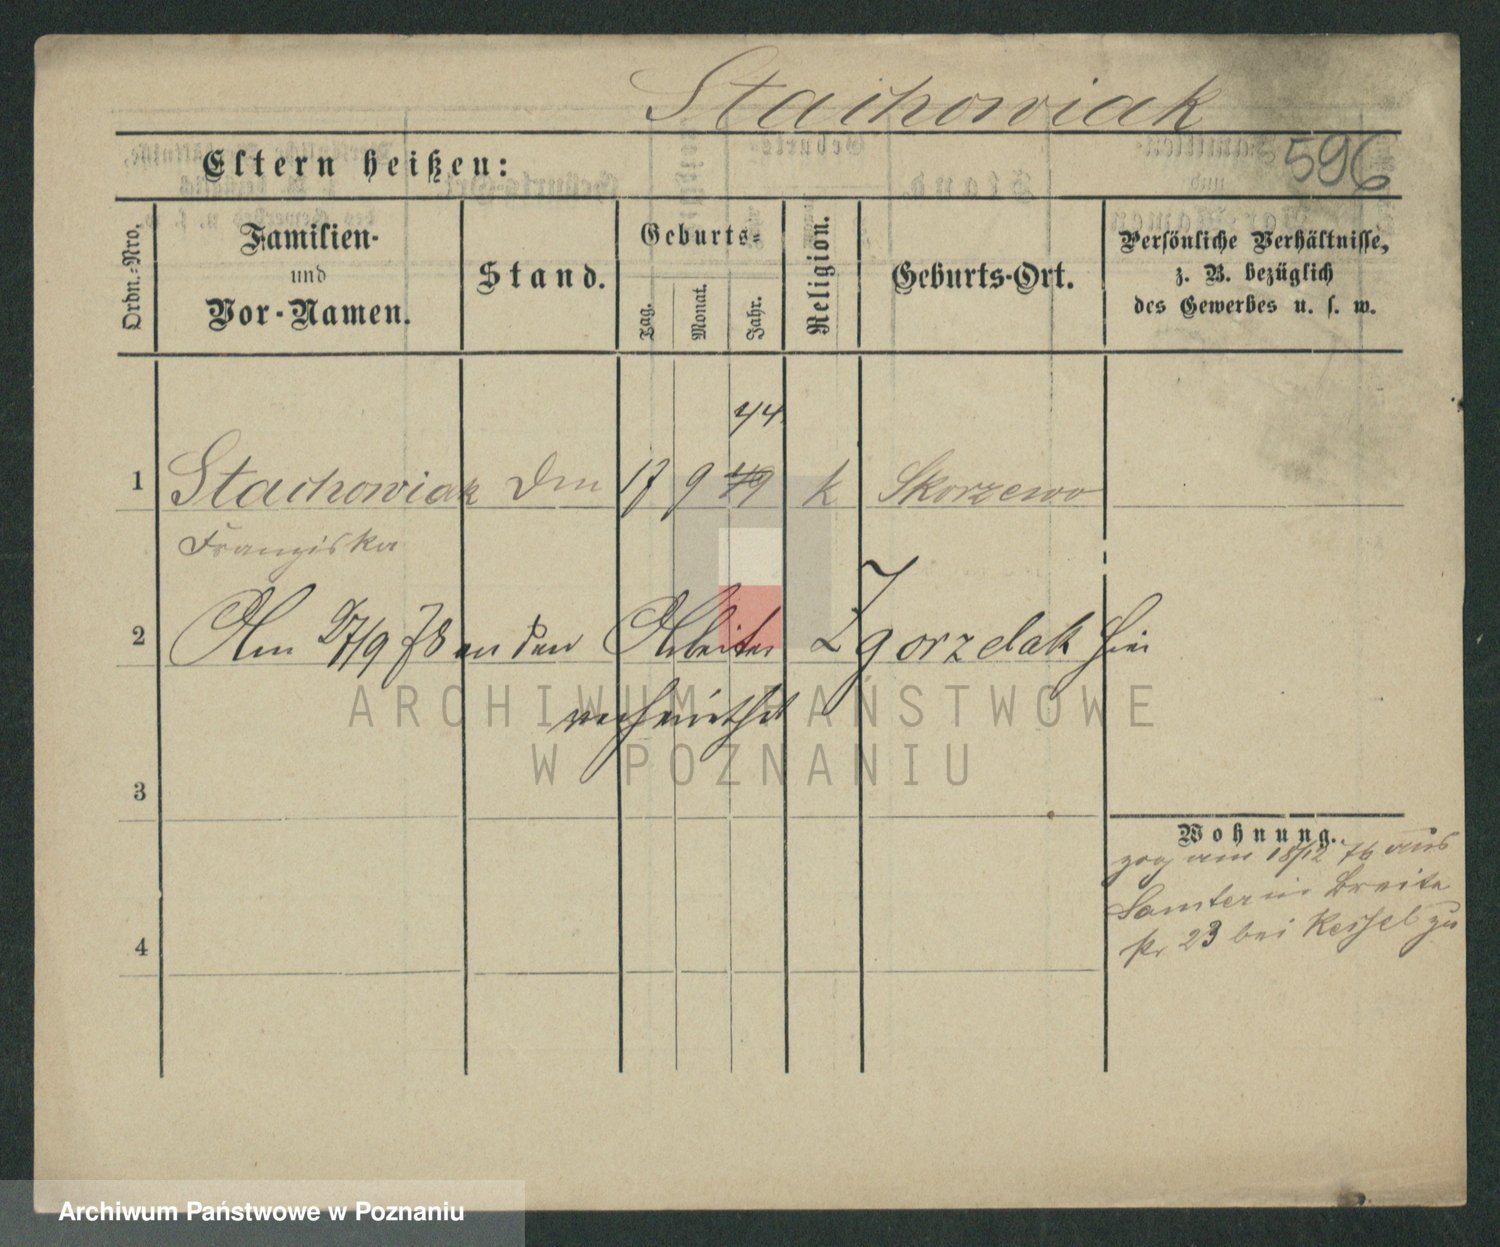 Stachowiak
596
Eltern heißen:
Ordn.-Nro. Familien- und Vor-Namen. Stand. Geburts- Tag. Monat. Jahr. Religion. Geburts-Ort. Persönliche Verhältnisse, z. B. bezüglich des Gewerbes u. s. w.
44.
1 Stachowiak 17 9 49 k Skorzewo
Franziska
2 Am 27/9 78 an den Arbeiter Zgorzelak hier
verheirathet
3
Wohnung.
zog am 18/12 76 aus
Samter in Breite
4 str 23 bei Kessel zu
ARCHIWUM PAŃSTWOWE
W POZNANIU
Archiwum Państwowe w Poznaniu